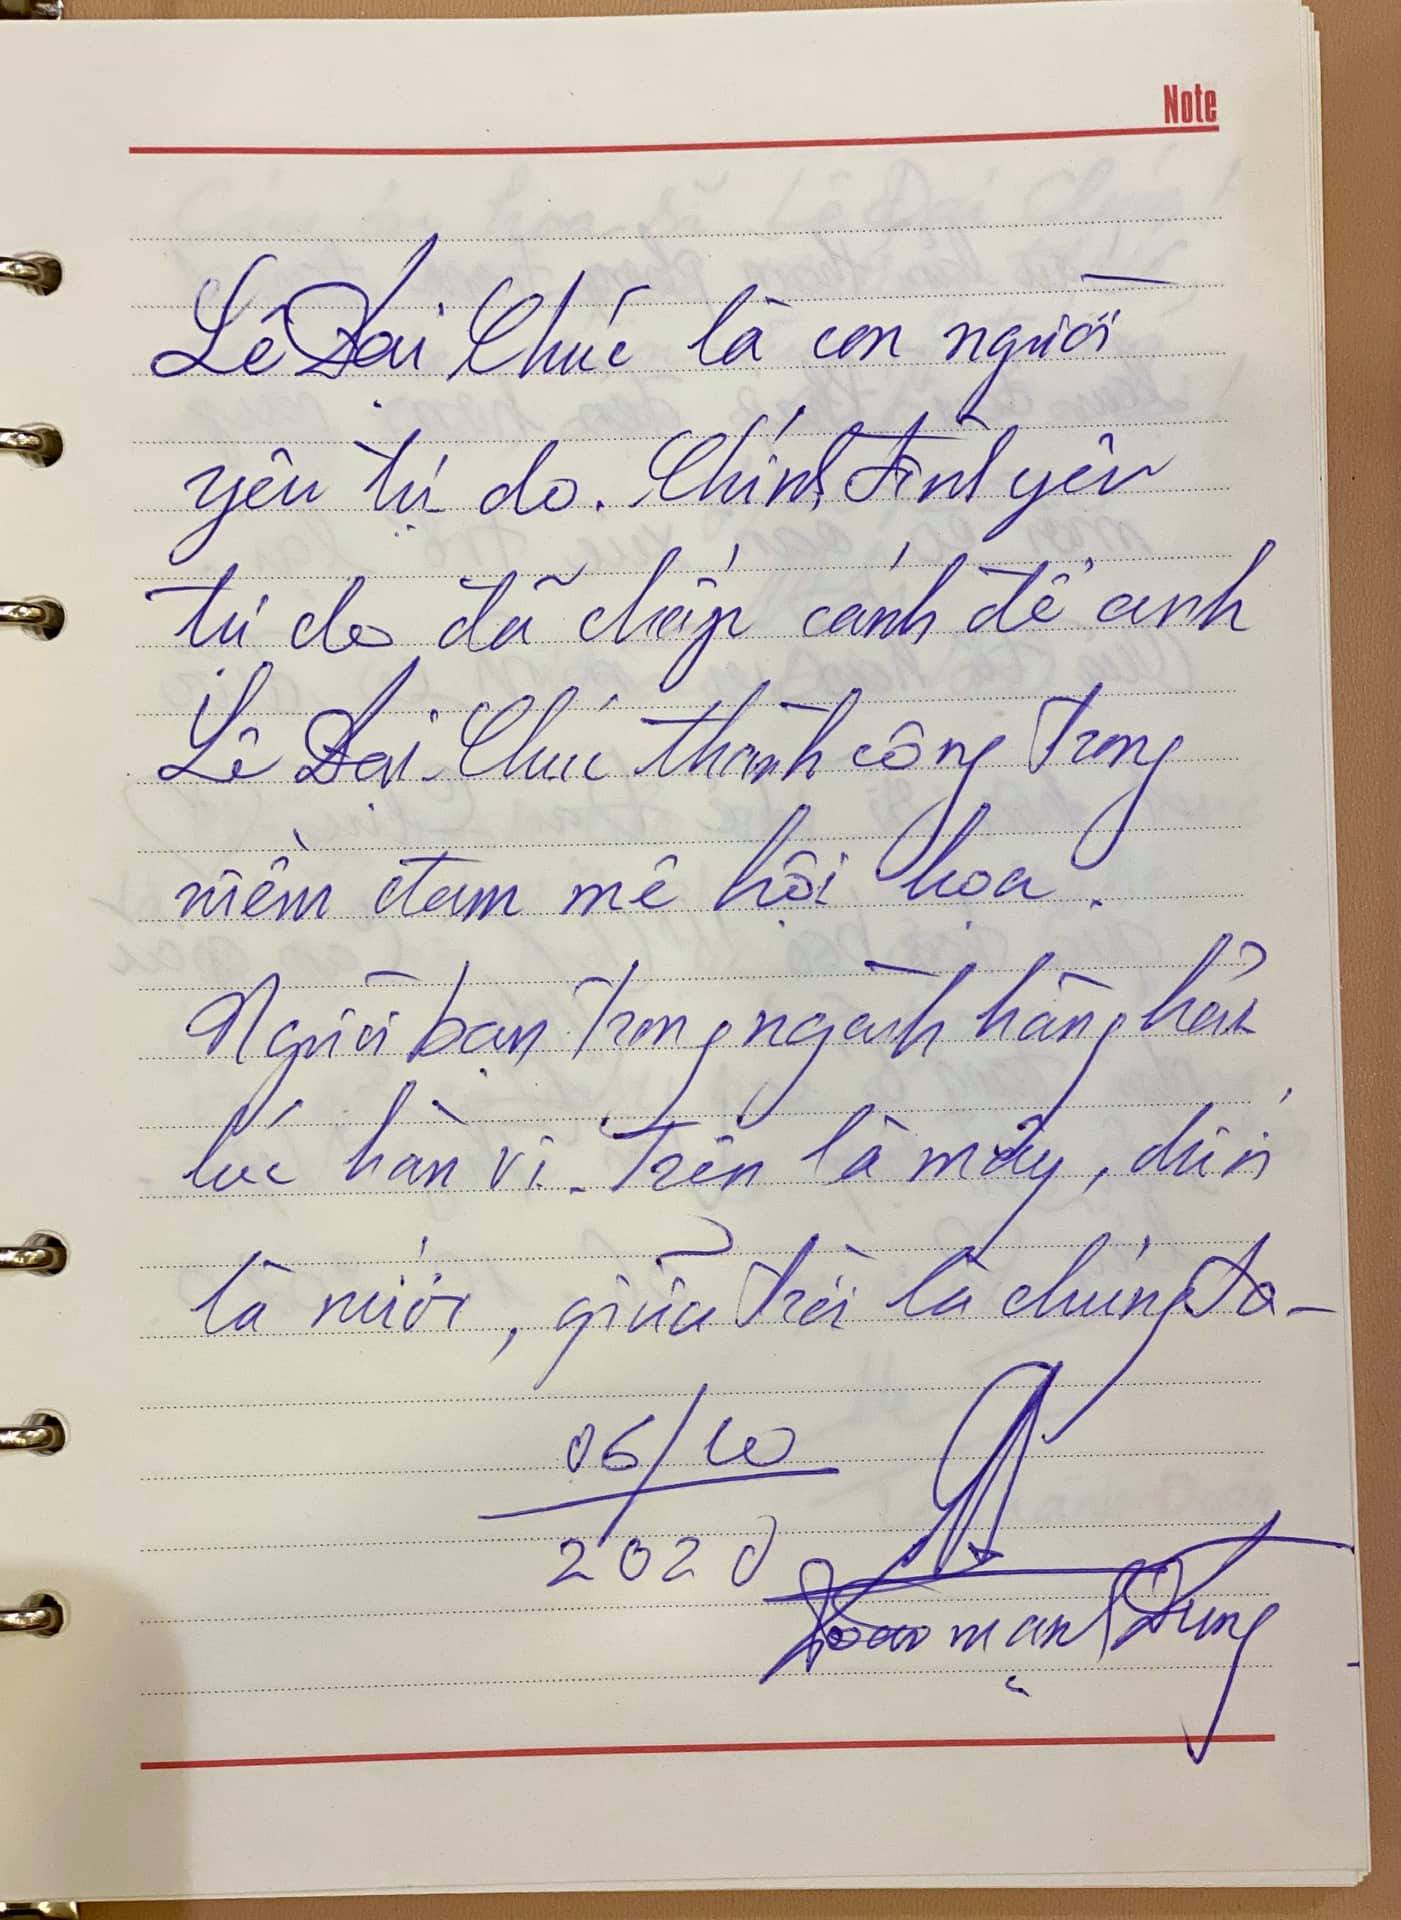 Note
Lê Đại Chúc là con người
yêu tự do. Chính tình yêu
tự do đã chắp cánh để anh
Lê Đại Chúc thành công trong
niềm đam mê hội họa.
Người bạn trong ngành hàng hải
lúc hàn vi. Trên là mây, dưới
là nước, giữa trời là chúng ta
06/10
2020
mạnh Dũng